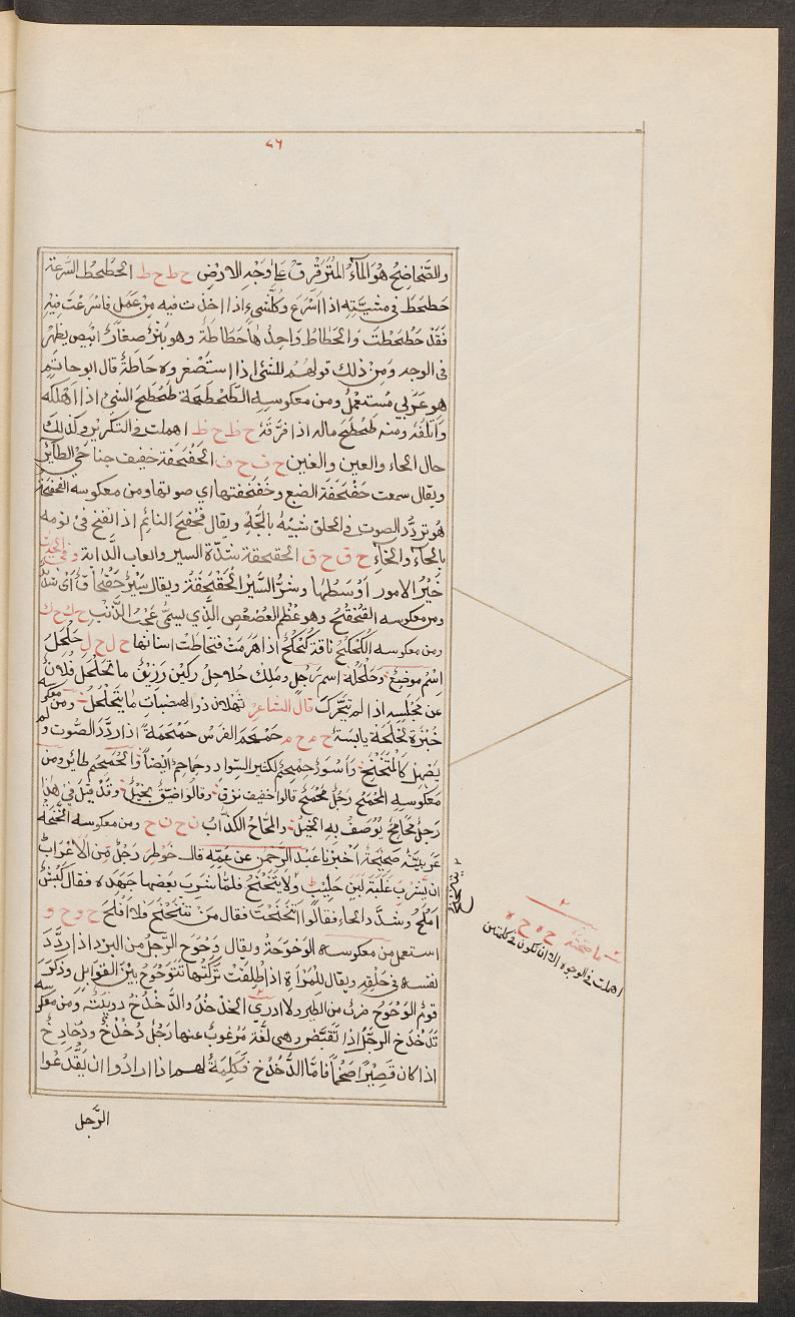 ٧٦
والضحاضح هو الماء المترقرق على وجه الارض ح ط ح ط الحطحط السرعة
حطحط في مشيته اذا اسرع وكل شيء اذا اخذت فيه من عمل فاسرعت فيه
فقد حطحطت والحطاط واحدها حطاطة وهو بثر صغار ابيض يظهر
في الوجه ومن ذلك قولهم للشئ اذا استصغروه حاطة قال ابو حاتم
هو عربي مستعمل ومن معكوسه الطحطحة طحطح الشئ اذا اهلكه
واتلفه ومنه طحطح ماله اذا فرقه ح ظ ح ظ اهملت في التكرير وكذلك
حال الحاء والعين والغين ح ف ح ف الحفحفة خفيف جناحي الطاير
ويقال سمعت حفحفة الضبع وخفخفتها اي صوتها ومن معكوسه الفحفحة
هو تردد الصوت في الحلق شبيه بالبحة ويقال فحفح النائم اذا نفخ في نومه
بالحاء والخاء ح ق ح ق الحقحقة شدة السير واتعاب الدابة وفي الحديث
خير الامور اوسطها وشر السير الحقحقة ويقال سير حقحاق اي شديد
ومن معكوسه القحقح وهو عظم العصعص الذي يسمى عجب الذنب ح ك ح ك
ومن معكوسه الكحكح ناقة كحكح اذا هرمت فتحاطت اسنانها ح ل ح ل حلحل
اسم موضع وحلحلة اسم رجل وملك حلاحل ركين رزين ما تحلحل فلان
عن مجلسه اذا لم يتحرك قال الشاعر ثهلان ذو الهضبات ما يتحلحل ومن معكوسه
خبزة لحلحة يابسة ح م ح م حمحم الفرس حمحمة اذا ردد الصوت ولم
يصهل كالمتنحنح واسود حمحم لكثير السواد وحماحم ايضا والحمحم طاير ومن
معكوسه المحمح رجل محمح قالوا خفيف نزق وقالوا ضيق بخيل وقد قيل في هذا
رجل محامح يوصف به البخيل والمحاح الكذاب ن ح ن ح ومن معكوسه النحنحة
عربية صحيحة اخبرنا عبد الرحمن عن عمه قال خوطر رجل من الاعراب
ان يشرب علبة لبن حليب ولا يتنحنح فلما شرب بعضها جهده فقال كبش
املح وشدد الحاء فقالوا تنحنحت فقال من تنحنح فلا افلح ح و ح و
استعمل من معكوسه الوحوحة ويقال وحوح الرجل من البرد اذا ردد
نفسه في حلقه ويقال للمراة اذا طلقت تركتها توحوح بين القوابل وذكر
قوم الوحوح ضرب من الطير ولا ادري الخدخد والدخدخ دويبة ومن معكوسه
تدخدخ الرجل اذا تقبض هي لغة مرغوب عنها رجل دخدخ ودخادخ
اذا كان قصيرا ضخما فاما الدخدخ فكلمة لهم اذا ارادوا ان يقدعوا
الرجل
يتنحنح
ح ه ح ه
اهملت في الوجوه الا ان تكون في كلمتين